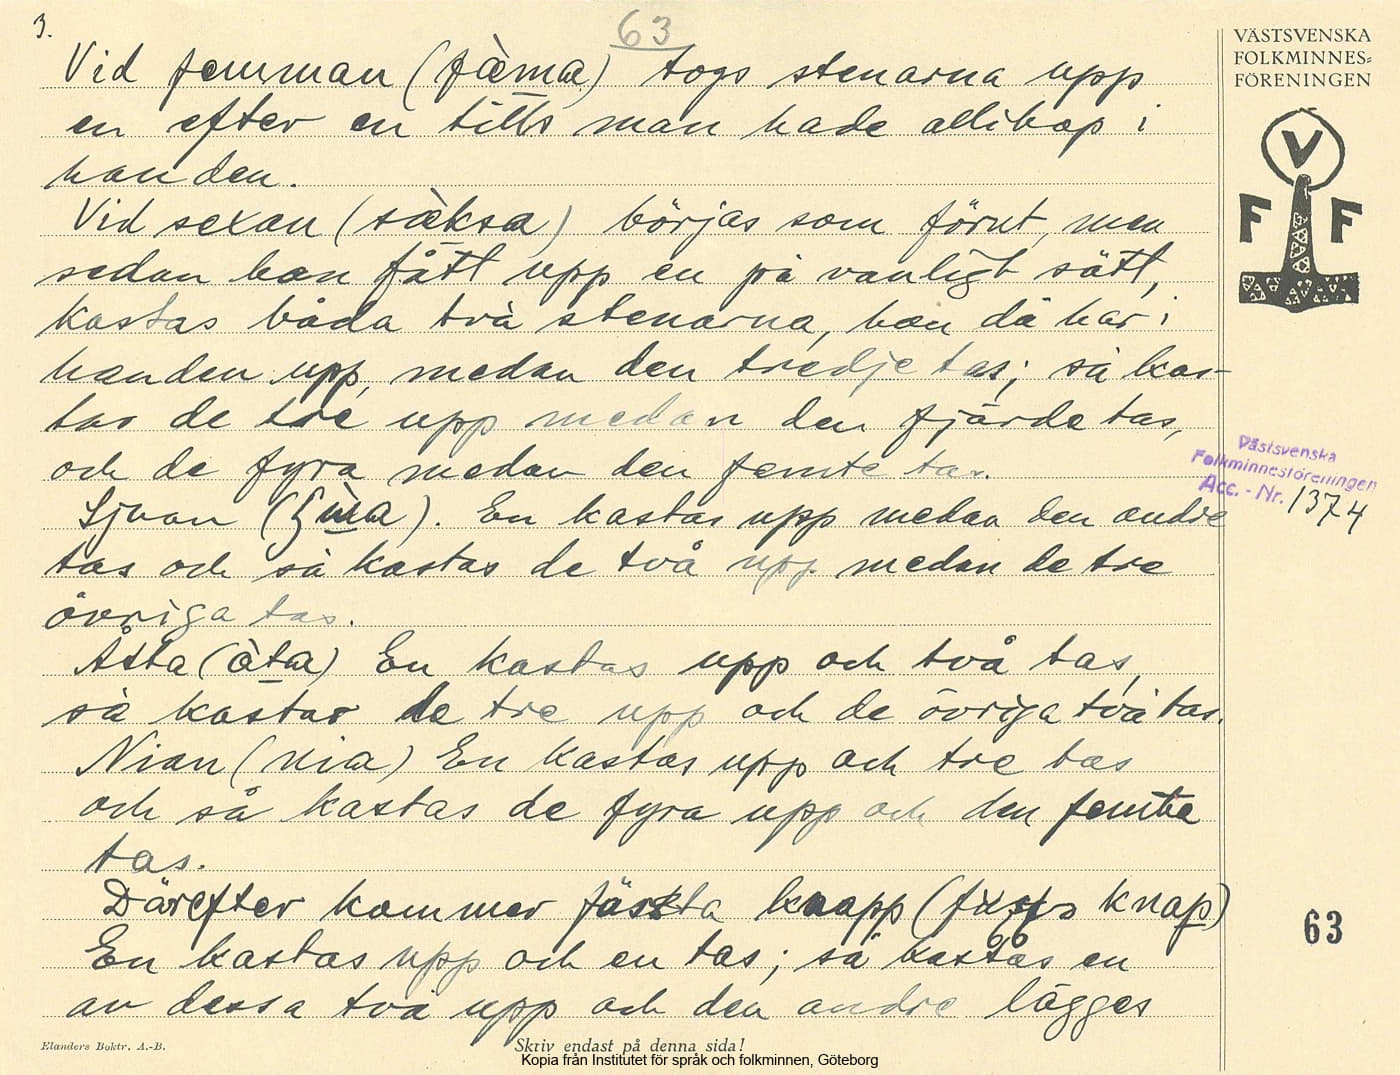 3.
63
Vid femman (fàma) togs stenarna upp
en efter en tills man hade allihop i
handen.
Vid sexan (sàksa) börjas som förut, men
sedan han fått upp en på vanligt sätt,
kastas båda två stenarna, han då har i
handen upp, medan den tredje tas; så kas-
tas de tre upp medan den fjärde tas,
och de fyra medan den femte tas.
Sjuan En kastas upp medan den andre
tas och så kastas de två upp medan de tre
övriga tas.
Åtta (àta) En kastas upp och två tas,
så kastas de tre upp och de övriga två tas.
Nian (nia) En kastas upp och tre tas
och så kastas de fyra upp och den femte
tas.
Därefter kommer knapp knap)
En kastas upp och en tas; så kastas en
av dessa två upp och den andre lägges
VÄSTSVENSKA
FOLKMINNES-
FÖRENINGEN
V
F F
Västsvenska
Folkminnesföreningen
Acc. - Nr. 1374
63
Elanders Boktr. A.-B.
Skriv endast på denna sida!
Kopia från Institutet för språk och folkminnen, Göteborg